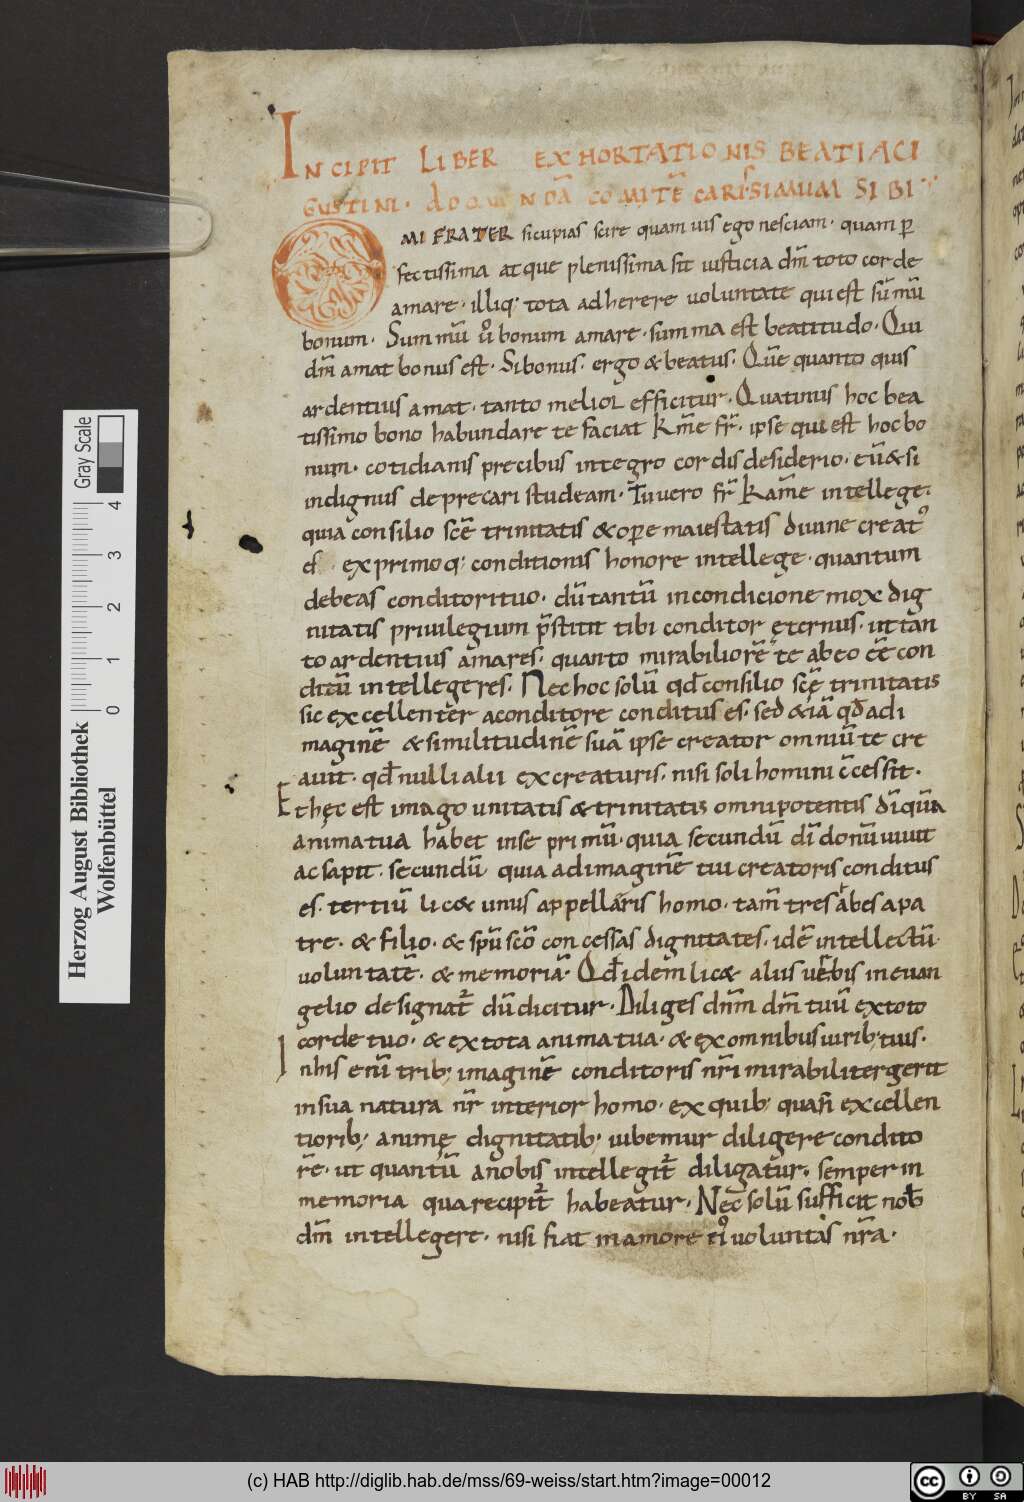 INCIPIT LIBER EXHORTATIONIS BEATI AGI
GUSTINI. AD QUENDĀ COMITĒ CARISSIMUM SIBI
O MI FRATER si cupias scire quam uis ego nesciam. quam ꝑ
fectissima atque plenissima sit iusticia dm̄ toto corde
amare. illiq; tota adherere uoluntate qui est sūmū
bonum. Summū ū bonum amare. summa est beatitudo. Qui
dm̄ amat bonus est. Si bonus. ergo & beatus. Quē quanto quis
ardentius amat. tanto melior efficitur. Quatinus hoc bea
tissimo bono habundare te faciat km̄e fr̄. ipse qui est hoc bo
num. cotidianis precibus integro cordis desiderio. etū & si
indignus deprecari studeam. Tu uero fr̄ kam̄e intellege.
quia consilio scē trinitatis & oꝑe maiestatis diuine creat᾿
es. ex primoq; conditionis honore intellege. quantum
debeas conditori tuo. dū tantū in condicione mox dig
nitatis priuilegium p̄stitit tibi conditor ęternus. ut tan
to ardentius amares. quanto mirabiliorē te ab eo eē con
ditū intellegeres. Nec hoc solū qd̄ consilio scę̄ trinitatis
sic excellenter a conditore conditus es. sed & iā qd̄ ad i
maginē & similitudinē suā ipse creator omniū te cre
auit. qd̄ nulli alii ex creaturis. nisi soli homini c̄cessit.
Et hęc est imago unitatis & trinitatis omnipotentis dī quā
anima tua habet in se primū. quia secundū dī donū uiuit
ac sapit. secundū quia ad imaginē tui creatoris conditus
es. tertiū lic& unus appellaris homo. tam̄ tres ab̄es a pa
tre. & filio. & spū scō concessas dignitates. idē intellectū
uoluntatē. & memoriā. Qd̄ idem lic& aliis uerbis in euan
gelio designat᾿ dū dicitur. Diliges dnm̄ dm̄ tuū ex toto
corde tuo. & ex tota anima tua. & ex omnibus uirib; tuis.
In his enū trib; imaginē conditoris nr̄i mirabiliter gerit
in sua natura nr̄ interior homo. ex quib; quasi excellen
tiorib; animę dignitatib; iubemur diligere condito
rē. ut quantū a nobis intellegit᾿ diligatur. semper in
memoria qua recipit᾿ habeatur. Nec solū sufficit nob̄
dm̄ intellegere. nisi fiat in amore ei᾿ uoluntas nr̄a.
Herzog August Bibliothek
Wolfenbüttel
Gray Scale
0 1 2 3 4
(c) HAB http://diglib.hab.de/mss/69-weiss/start.htm?image=00012
cc BY SA